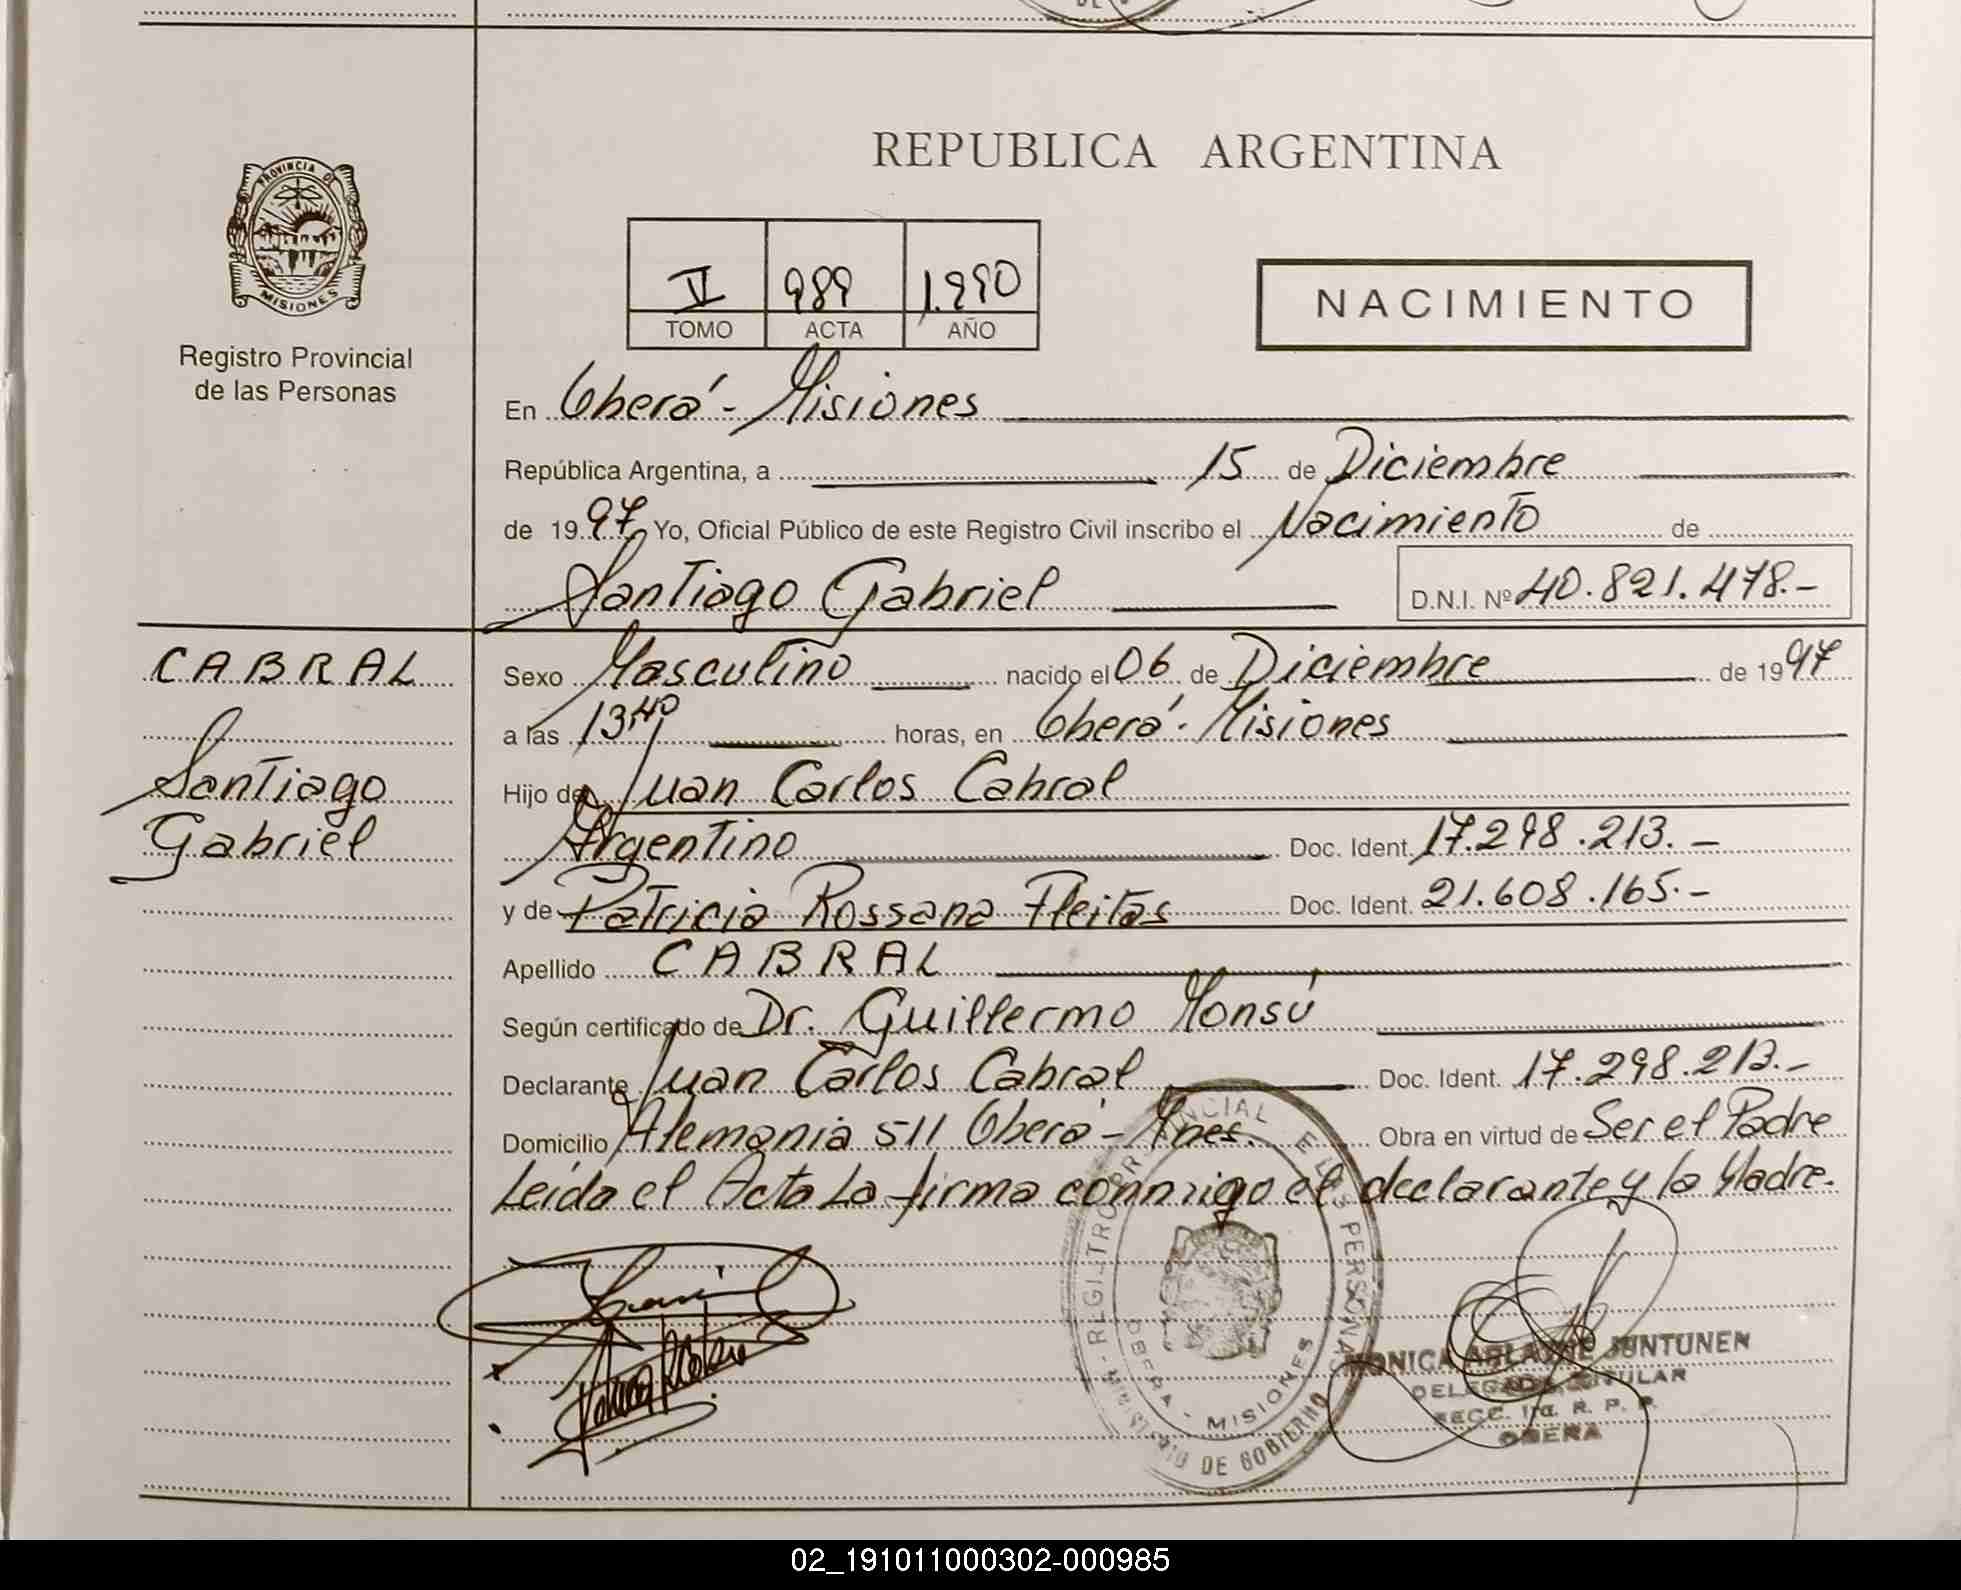 REPUBLICA ARGENTINA
PROVINCIA DE
MISIONES
Registro Provincial
de las Personas
V 989 1.990
TOMO ACTA AÑO
NACIMIENTO
En Oberá - Misiones
República Argentina, a 15 de Diciembre
de 1997 Yo, Oficial Público de este Registro Civil inscribo el Nacimiento de
Santiago Gabriel D.N.I. Nº 40.821.478.-
CABRAL
Santiago
Gabriel
Sexo Masculino nacido el 06 de Diciembre de 1997
a las 13,40 horas, en Oberá - Misiones
Hijo de Juan Carlos Cabral
Argentino Doc. Ident. 17.298.213.-
y de Patricia Rossana Fleitas Doc. Ident. 21.608.165.-
Apellido CABRAL
Según certificado de Dr. Guillermo Monsú
Declarante Juan Carlos Cabral Doc. Ident. 17.298.213.-
Domicilio Alemania 511 Oberá - Mnes. Obra en virtud de Ser el Padre
Leída el Acta La firma conmigo el declarante y la Madre.
REGISTRO PROVINCIAL DE LAS PERSONAS
OBERA - MISIONES
MINISTERIO DE GOBIERNO
MONICA JUNTUNEN
DELEGADA TITULAR
SECC. 1ra. R. P. P.
OBERA
02_191011000302-000985